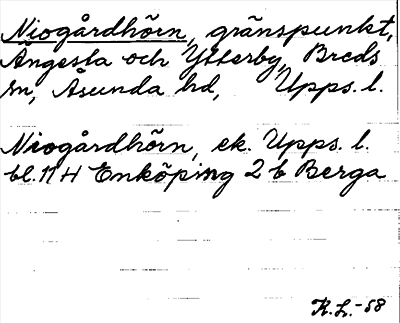 Niogårdhörn, gränspunkt,
Ängesta och Ytterby, Breds
sn, Åsunda hd, Upps. l.
Niogårdhörn, ek. Upps. l.
bl. 11 H Enköping 2 b Berga
R.L.-58